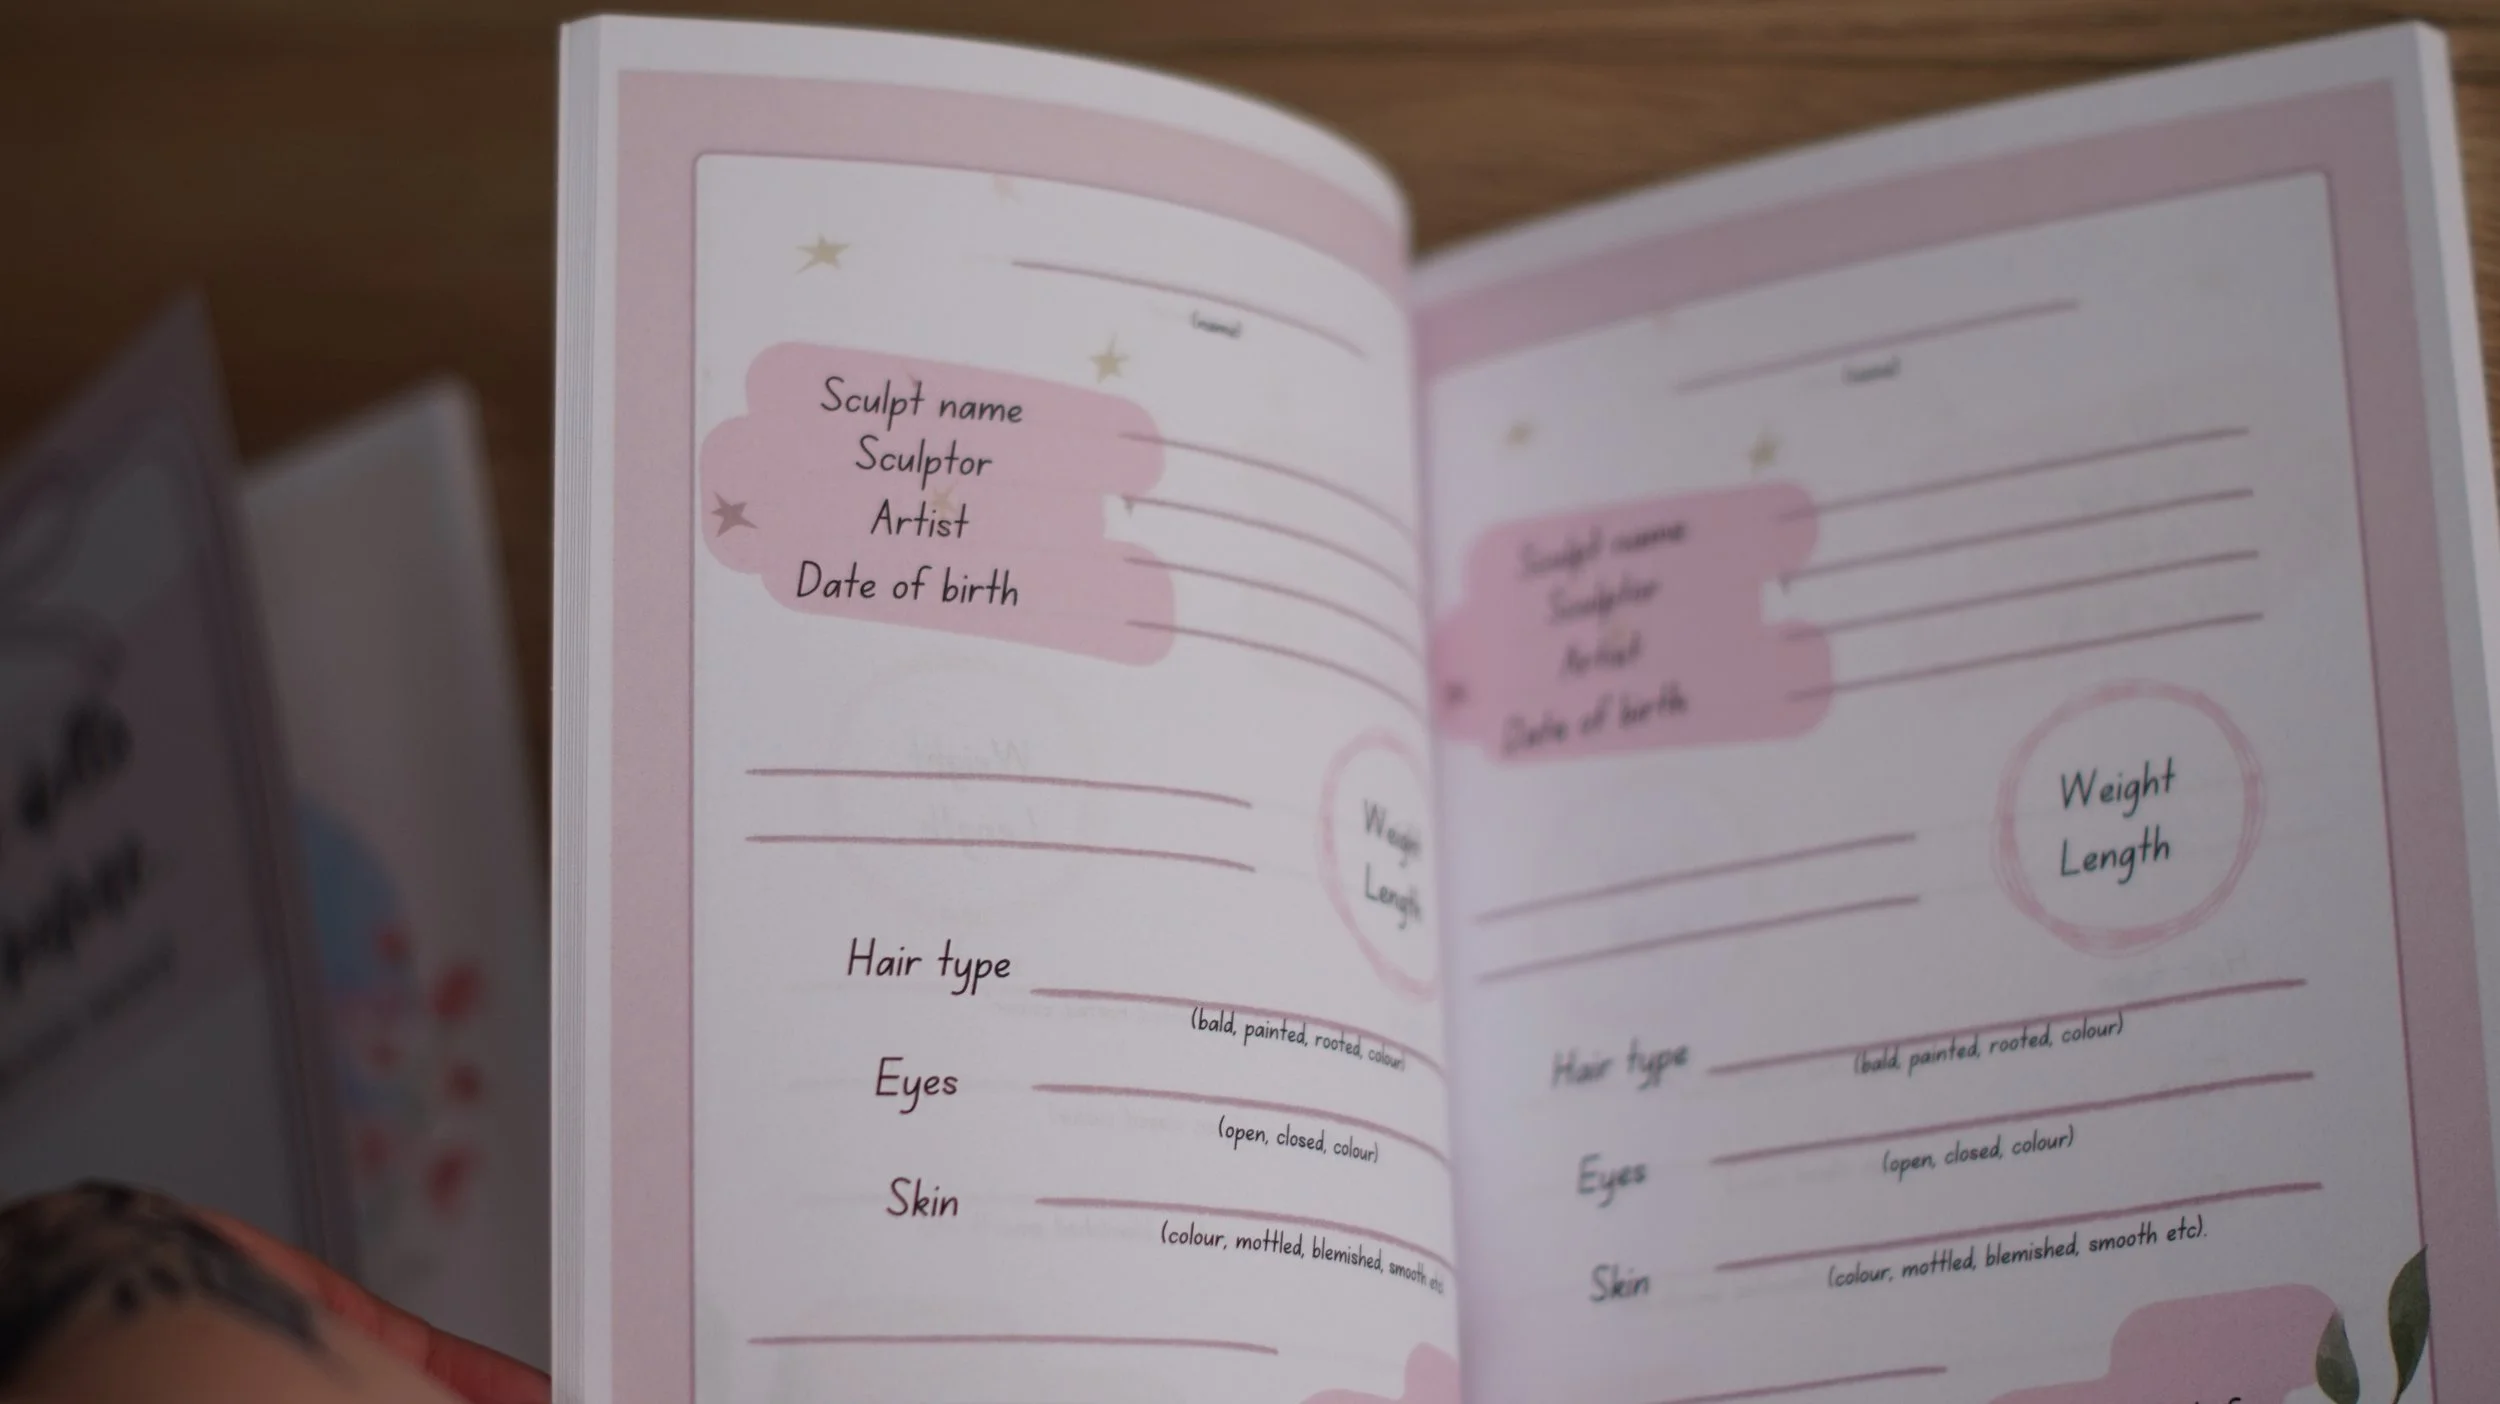 (name)
Sculpt name
Sculptor
Artist
Date of birth
Weight
Length
Hair type
(bald, painted, rooted, colour)
Eyes
(open, closed, colour)
Skin
(colour, mottled, blemished, smooth etc
(name)
Sculpt name
Sculptor
Artist
Date of birth
Weight
Length
Hair type
(bald, painted, rooted, colour)
Eyes
(open, closed, colour)
Skin
(colour, mottled, blemished, smooth etc).